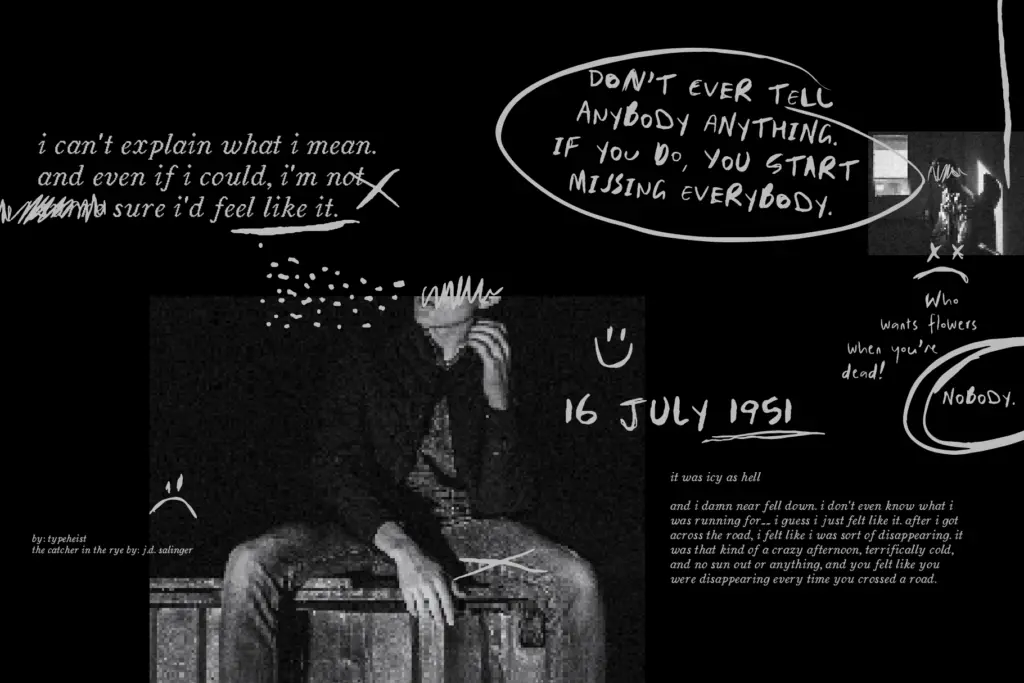 i can't explain what i mean.
and even if i could, i'm not
sure i'd feel like it.
DON'T EVER TELL
ANYBODY ANYTHING.
IF YOU DO, YOU START
MISSING EVERYBODY.
Who
wants flowers
when you're
dead!
NOBODY.
16 JULY 1951
it was icy as hell
and i damn near fell down. i don't even know what i
was running for-- i guess i just felt like it. after i got
across the road, i felt like i was sort of disappearing. it
was that kind of a crazy afternoon, terrifically cold,
and no sun out or anything, and you felt like you
were disappearing every time you crossed a road.
by: typeheist
the catcher in the rye by: j.d. salinger